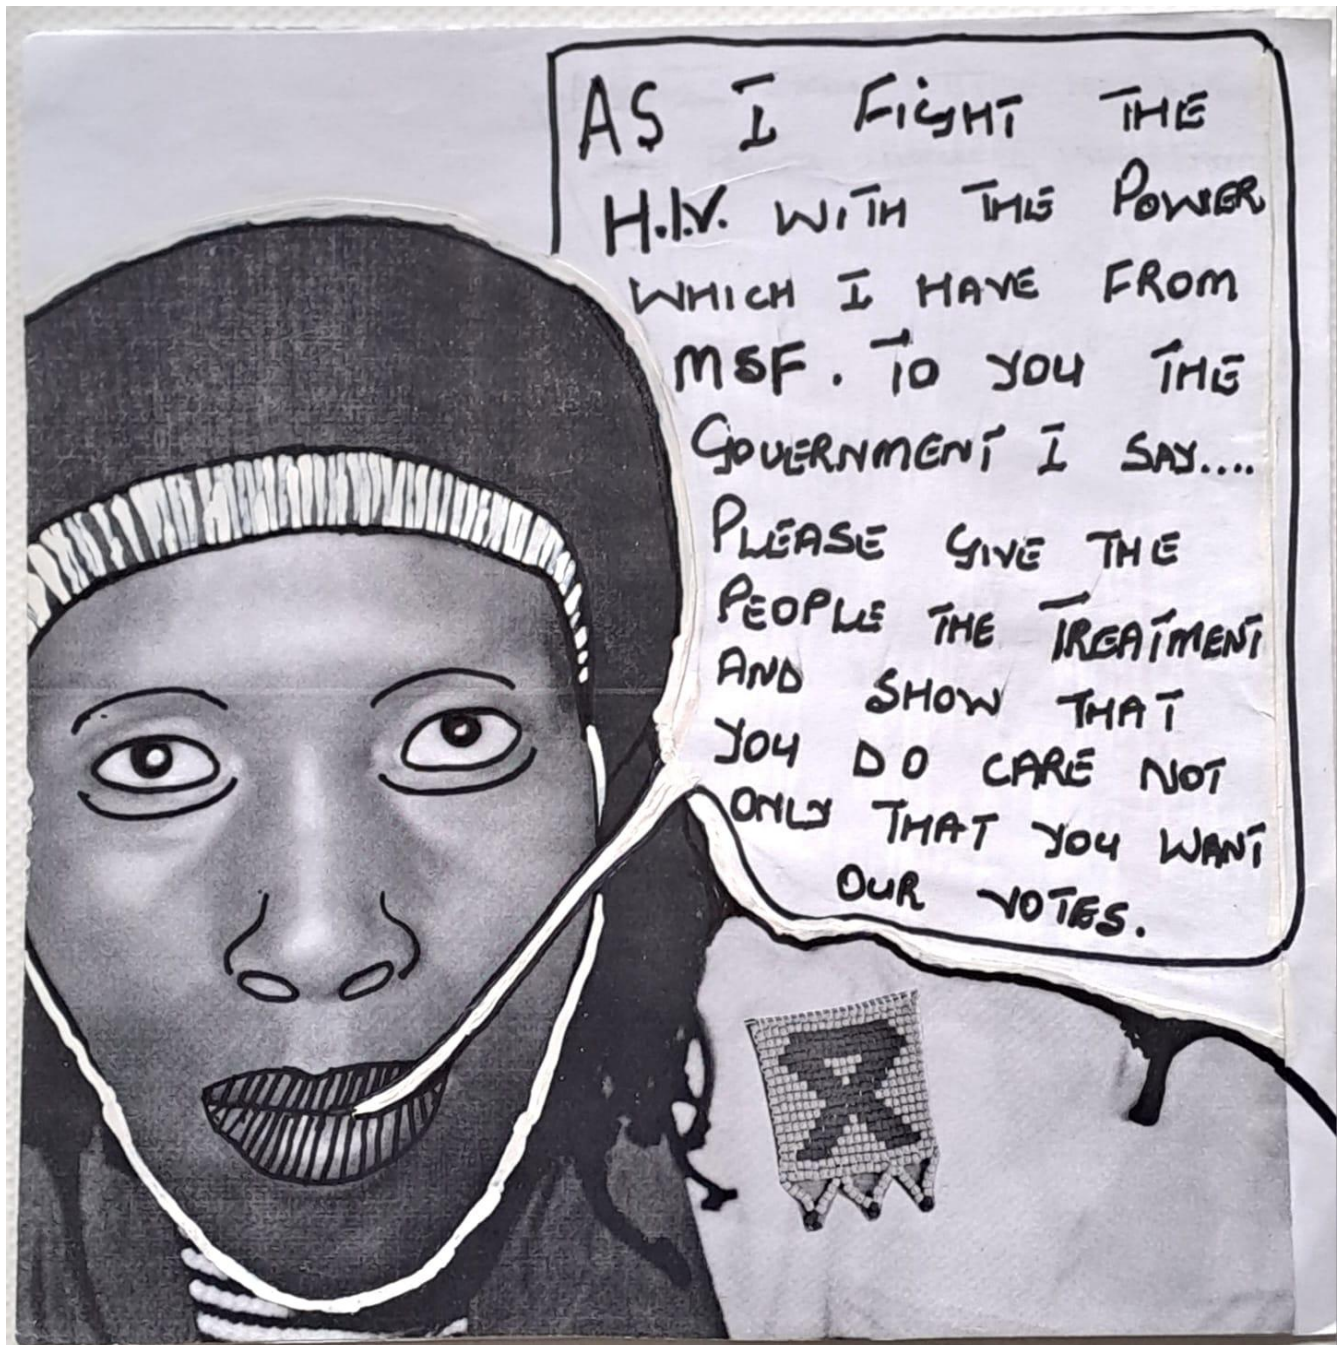 AS I FIGHT THE
H.I.V. WITH THE POWER
WHICH I HAVE FROM
MSF. TO YOU THE
GOVERNMENT I SAY....
PLEASE GIVE THE
PEOPLE THE TREATMENT
AND SHOW THAT
YOU DO CARE NOT
ONLY THAT YOU WANT
OUR VOTES.